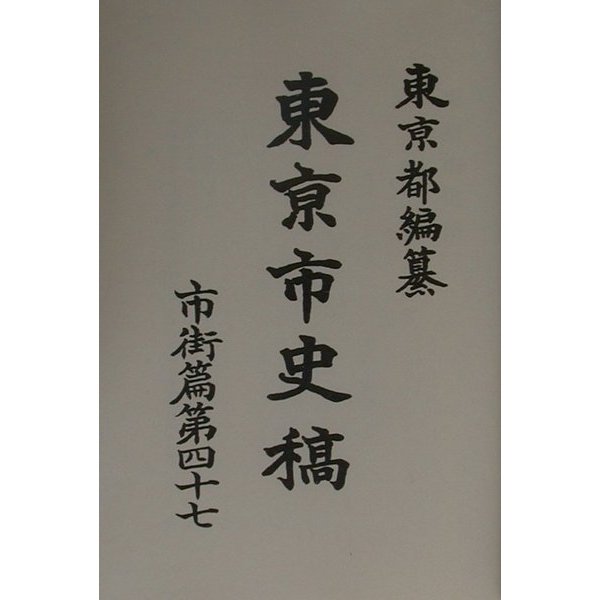 東亰都編纂
東亰市史稿
市街篇第四十七